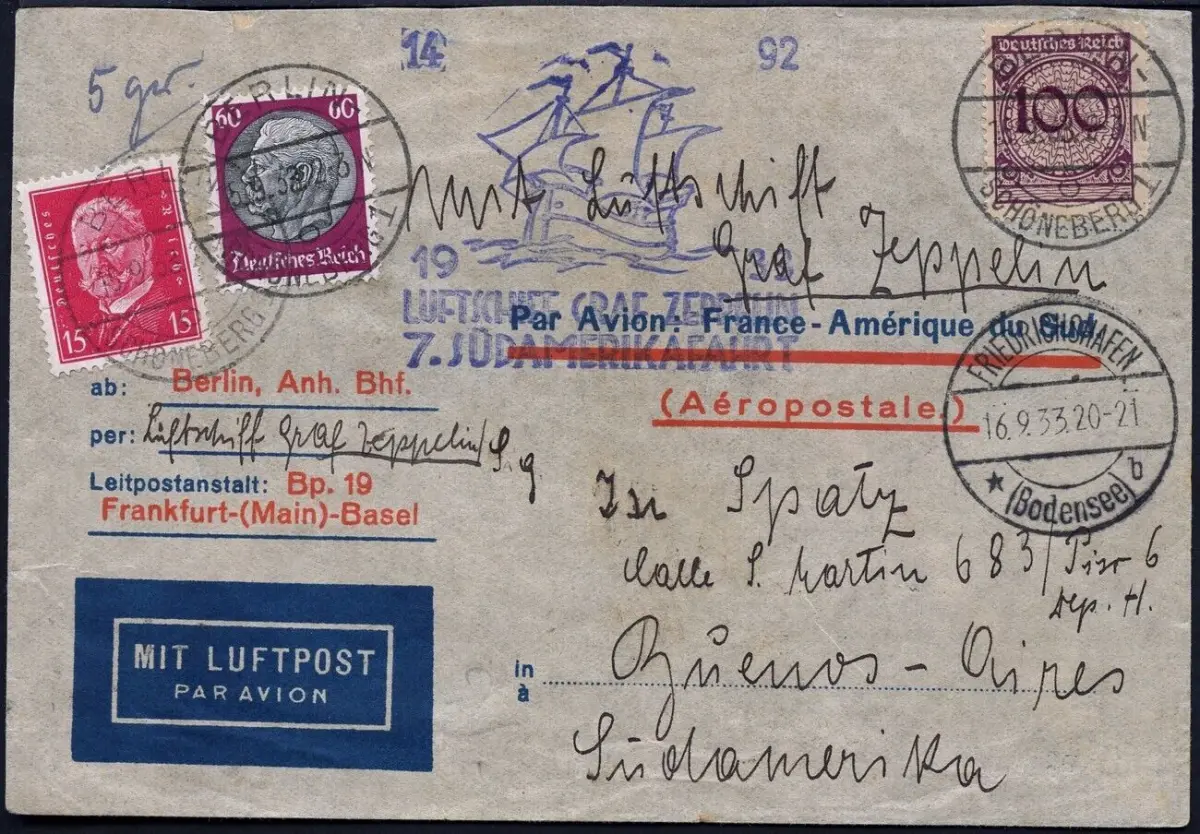 14 92
5 gr.
60 60
Deutsches Reich
Deutsches Reich
15 15
Deutsches Reich
100
BERLIN-
SCHÖNEBERG 1
BERLIN-
SCHÖNEBERG 1
BERLIN-
SCHÖNEBERG
Mit Luftschiff
Graf Zeppelin
19 33
LUFTSCHIFF GRAF ZEPPELIN
7. SÜDAMERIKAFAHRT
Par Avion: France-Amérique du Sud
(Aéropostale.)
FRIEDRICHSHAFEN
16.9.33.20-21
★ (Bodensee) b
ab: Berlin, Anh. Bhf.
per: Luftschiff Graf Zeppelin
Leitpostanstalt: Bp. 19
Frankfurt-(Main)-Basel
Spatz
Calle S. Martin 683/Piso 6
Dep. H.
MIT LUFTPOST
PAR AVION
in
à
Buenos-Aires
Südamerika